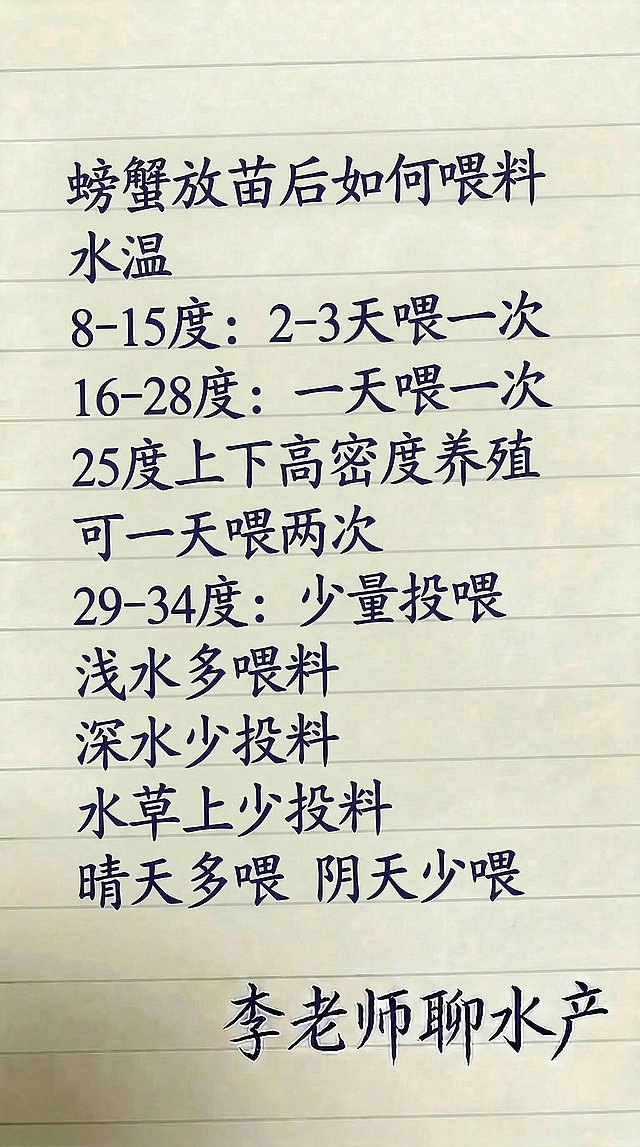 螃蟹放苗后如何喂料
水温
8-15度：2-3天喂一次
16-28度：一天喂一次
25度上下高密度养殖
可一天喂两次
29-34度：少量投喂
浅水多喂料
深水少投料
水草上少投料
晴天多喂 阴天少喂
李老师聊水产